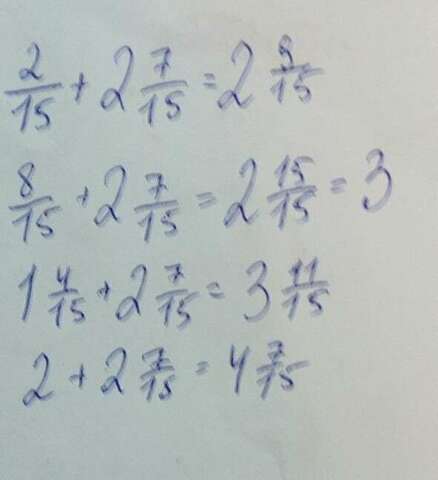 2/15 + 2 7/15 = 2 9/15
8/15 + 2 7/15 = 2 15/15 = 3
1 4/15 + 2 7/15 = 3 11/15
2 + 2 7/15 = 4 7/15